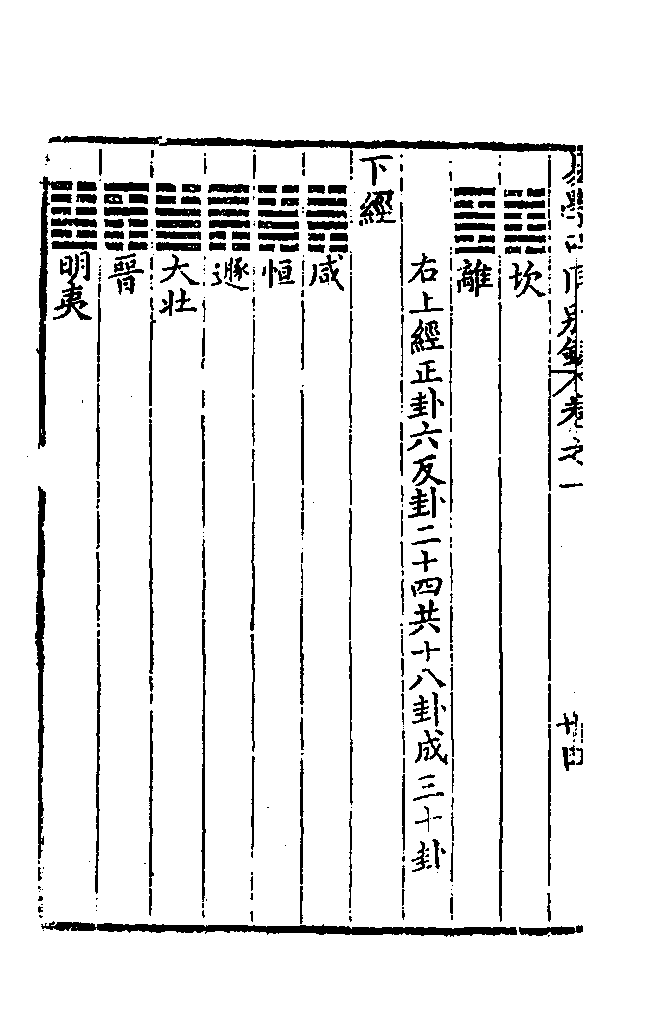 坎
離
右上經正卦六反卦二十四共十八卦成三十卦
下經
咸
恒
遯
大壯
晉
明夷